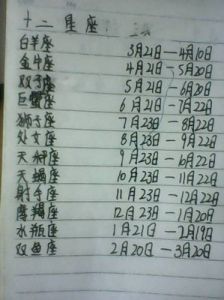 十二星座
白羊座 3月21日—4月10日
金牛座 4月21日—5月20日
双子座 5月21日—6月20日
巨蟹座 6月21日—7月22日
狮子座 7月23日—8月22日
处女座 8月23日—9月22日
天秤座 9月23日—10月22日
天蝎座 10月23日—11月22日
射手座 11月23日—12月22日
魔羯座 12月23日—1月20日
水瓶座 1月21日—2月19日
双鱼座 2月20日—3月20日